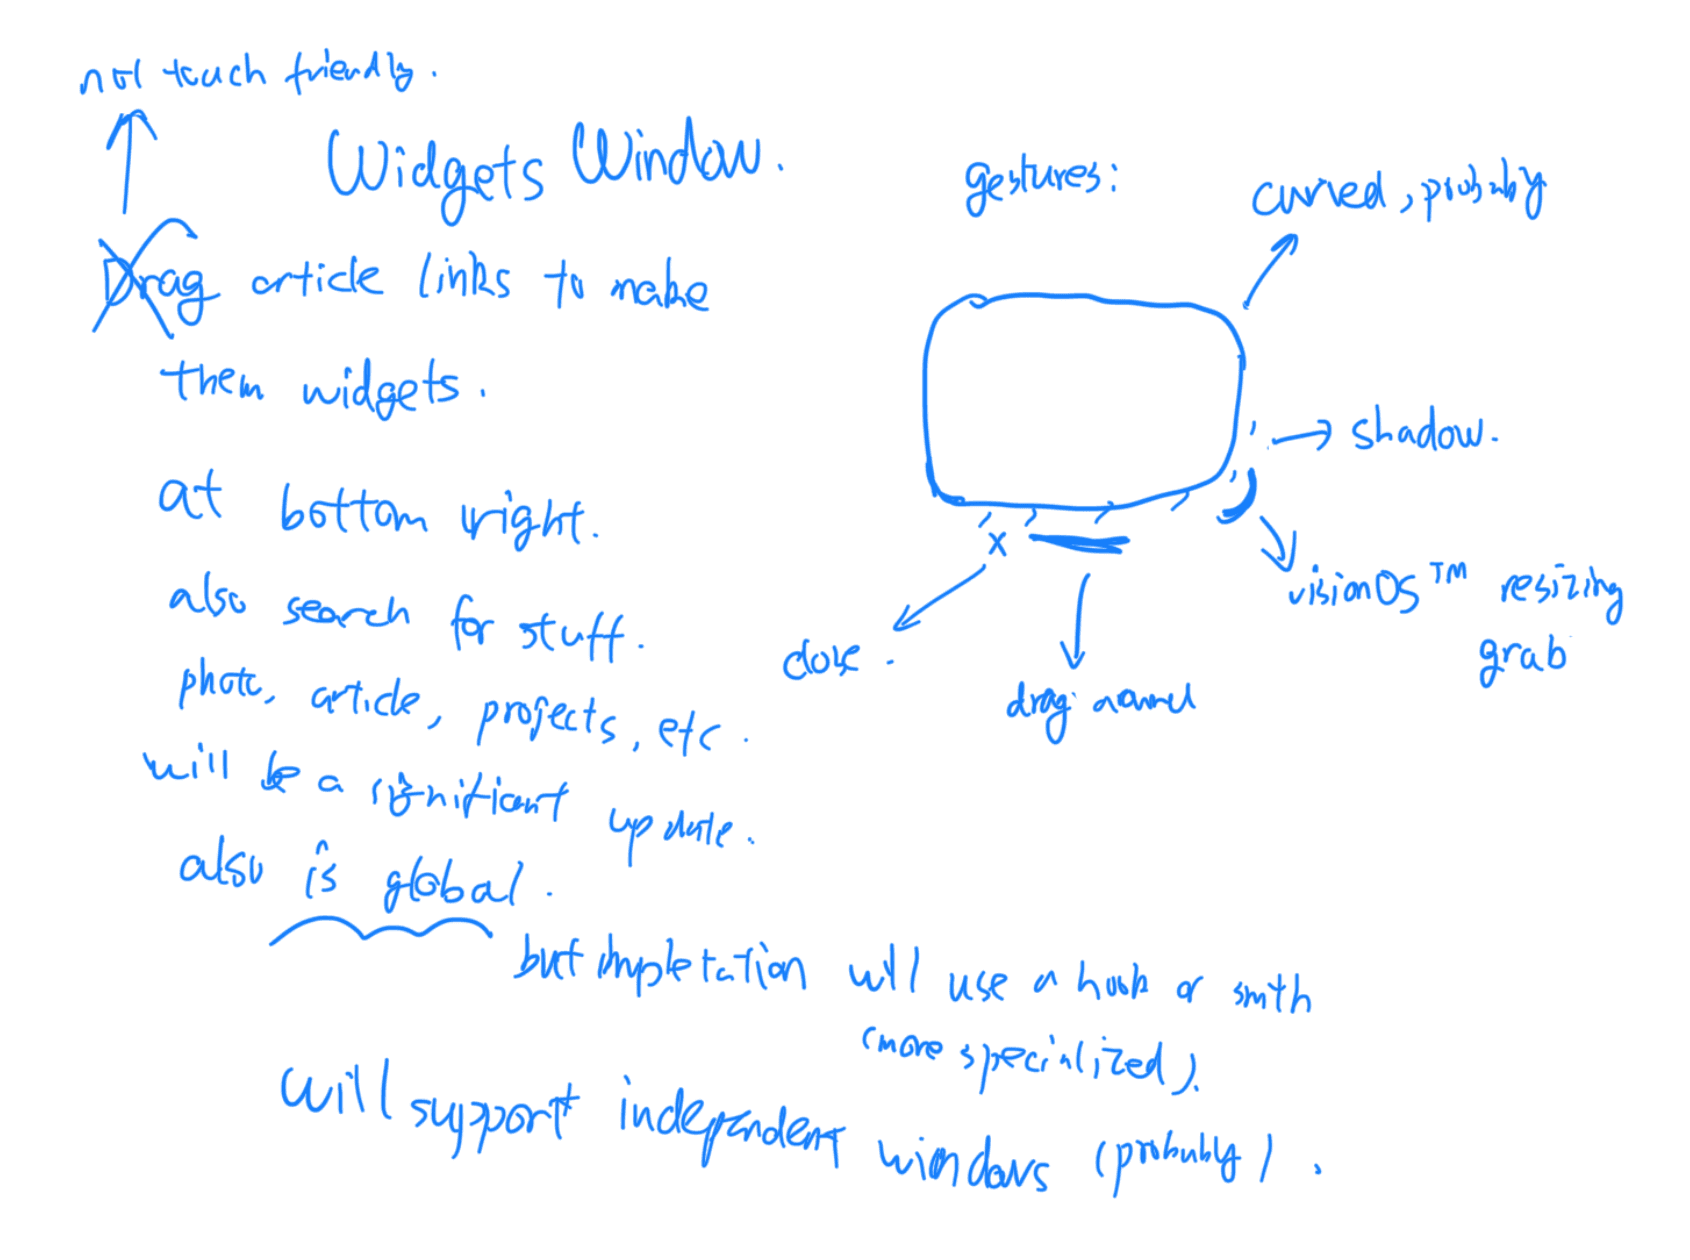 not touch friendly.
Widgets Window.
Drag article links to make
them widgets.
at bottom right.
also search for stuff.
photo, article, projects, etc.
will be a significant update.
also is global.
but impletation will use a hook or smth
(more specialized).
will support independent windows (probably).
gestures:
curved, probably
shadow.
visionOS™ resizing
grab
x
close.
drag around